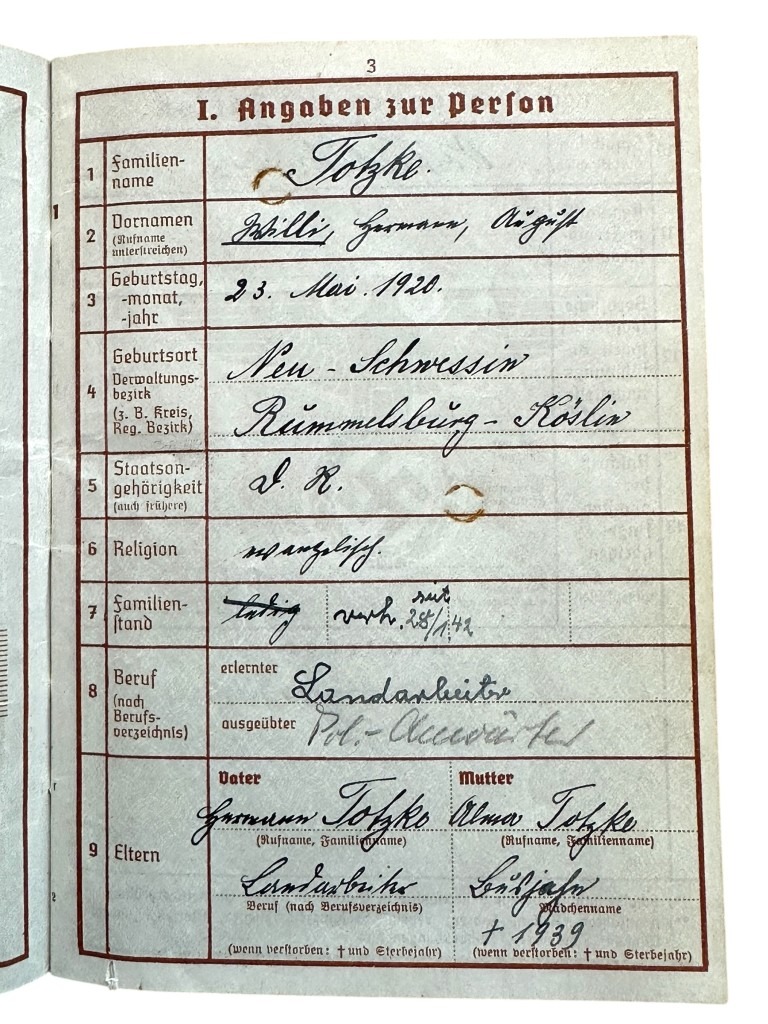 3
I. Angaben zur Person
1 Familien-
name
Totzke.
1
2 Vornamen
(Rufname
unterstreichen)
Willi, Hermann, August
3 Geburtstag,
-monat,
-jahr
23. Mai. 1920.
4 Geburtsort
Verwaltungs-
bezirk
(z. B. Kreis,
Reg. Bezirk)
Neu - Schwessin
Rummelsburg - Köslin
5 Staatsan-
gehörigkeit
(auch frühere)
D. R.
6 Religion
evangelisch.
7 Familien-
stand
ledig verh. seit
28/1.42
8 Beruf
(nach
Berufs-
verzeichnis)
erlernter
Landarbeiter
ausgeübter
Pol.- Anwärter
9 Eltern
Vater Mutter
Hermann Totzke Alma Totzke
(Rufname, Familienname) (Rufname, Familienname)
Landarbeiter Busjahn
Beruf (nach Berufsverzeichnis) Mädchenname
† 1939
(wenn verstorben: † und Sterbejahr) (wenn verstorben: † und Sterbejahr)